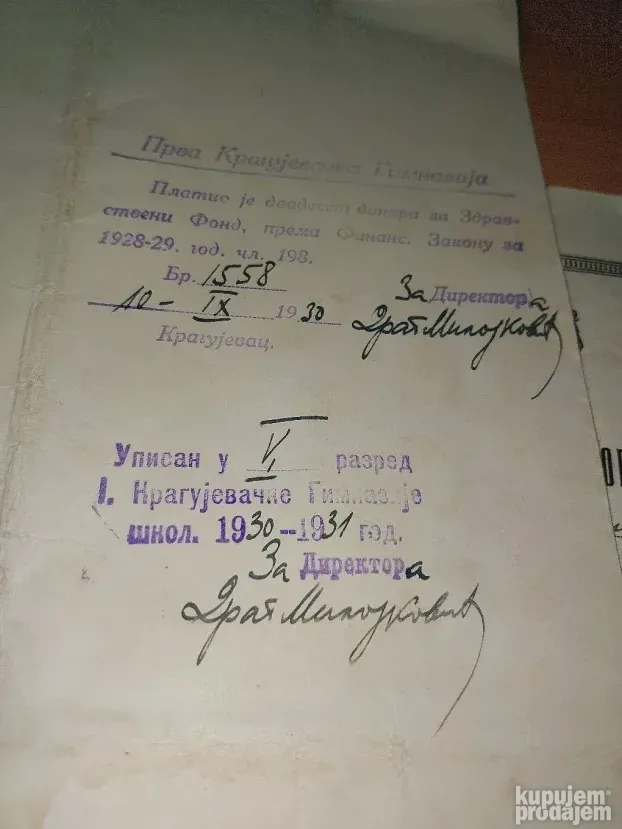 Прва Крагујевачка Гимназија
Платио је двадесет динара за Здрав-
ствени Фонд, према Финанс. Закону за
1928-29. год. чл. 198.
Бр. 1558
За Директора
10 - IX 1930
Драг Милојковић
Крагујевац.
Уписан у V, разред
I. Крагујевачке Гимназије
школ. 1930–1931 год.
За Директора
Драг Милојковић
kupujem
prodajem